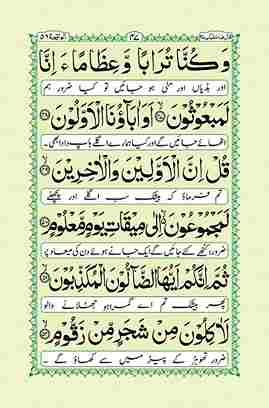 الواقعة ٥٦
وَكُنَّا تُرَابًا وَّعِظَامًا ءَاِنَّا
اور ہڈیاں اور مٹی ہو جائیں تو کیا ضرور ہم
لَمَبْعُوْثُوْنَ ۙ اَوَاٰبَآؤُنَا الْاَوَّلُوْنَ
اٹھائے جائیں گے اور کیا ہمارے اگلے باپ دادا بھی۔
قُلْ اِنَّ الْاَوَّلِيْنَ وَالْاٰخِرِيْنَ
تم فرماؤ کہ بیشک سب اگلے اور پچھلے
لَمَجْمُوْعُوْنَ ۙ اِلٰى مِيْقَاتِ يَوْمٍ مَّعْلُوْمٍ
ضرور اکٹھے کئے جائیں گے ایک جانے ہوئے دن کی میعاد پر
ثُمَّ اِنَّكُمْ اَيُّهَا الضَّآلُّوْنَ الْمُكَذِّبُوْنَ
پھر بیشک تم اے گمراہو جھٹلانے والو
لَاٰكِلُوْنَ مِنْ شَجَرٍ مِّنْ زَقُّوْمٍ
ضرور تھوہڑ کے پیڑ میں سے کھاؤ گے ۔